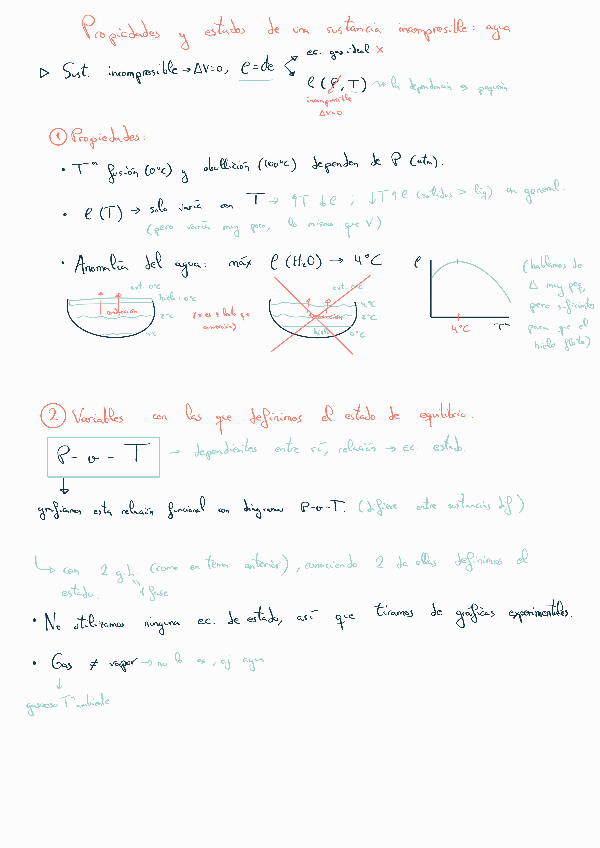 Propiedades y estados de una sustancia incompresible: agua
▷ Sust. incompresible → ΔV=0, ρ=cte
ec. gas ideal x
ρ(P, T) → la dependencia es pequeña
incompresible
ΔV=0
① Propiedades:
• Tª fusión (0ºC) y ebullición (100ºC) dependen de P (atm).
• ρ(T) → solo varía con T → ↑T ↓ρ ; ↓T ↑ρ (sólidos > líq) en general.
(pero varía muy poco, lo mismo que V)
• Anomalía del agua: máx ρ(H2O) → 4ºC
ext. 0ºC
hielo: 0ºC
2ºC
convección
(x eso lo de que convección)
ext. 0ºC
4ºC
2ºC
convección
hielo
0ºC
ρ
4ºC
Tª
(hablamos de
Δ muy peq
pero suficientes
para que el
hielo flote)
② Variables con las que definimos el estado de equilibrio.
P - v - T → dependientes entre sí, relación → ec. estado.
graficamos esta relación funcional con diagramas P-v-T. (difiere entre sustancias df)
↳ con 2 g.L. (como en tema anterior), conociendo 2 de ellas definimos el
estado.
x fase
• No utilizamos ninguna ec. de estado, así que tiramos de gráficas experimentales.
• Gas ≠ vapor → no lo es, ej agua
gaseoso Tª ambiente